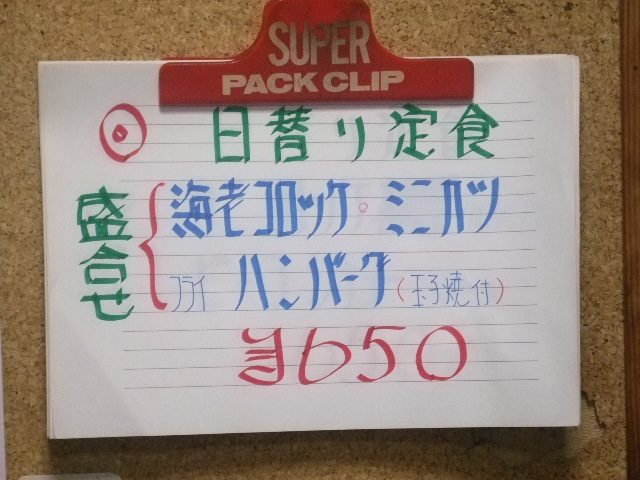 SUPER
PACK CLIP
日替り定食
盛合せ
海老コロッケ・ミニカツ
フライ ハンバーグ (玉子焼付)
¥650